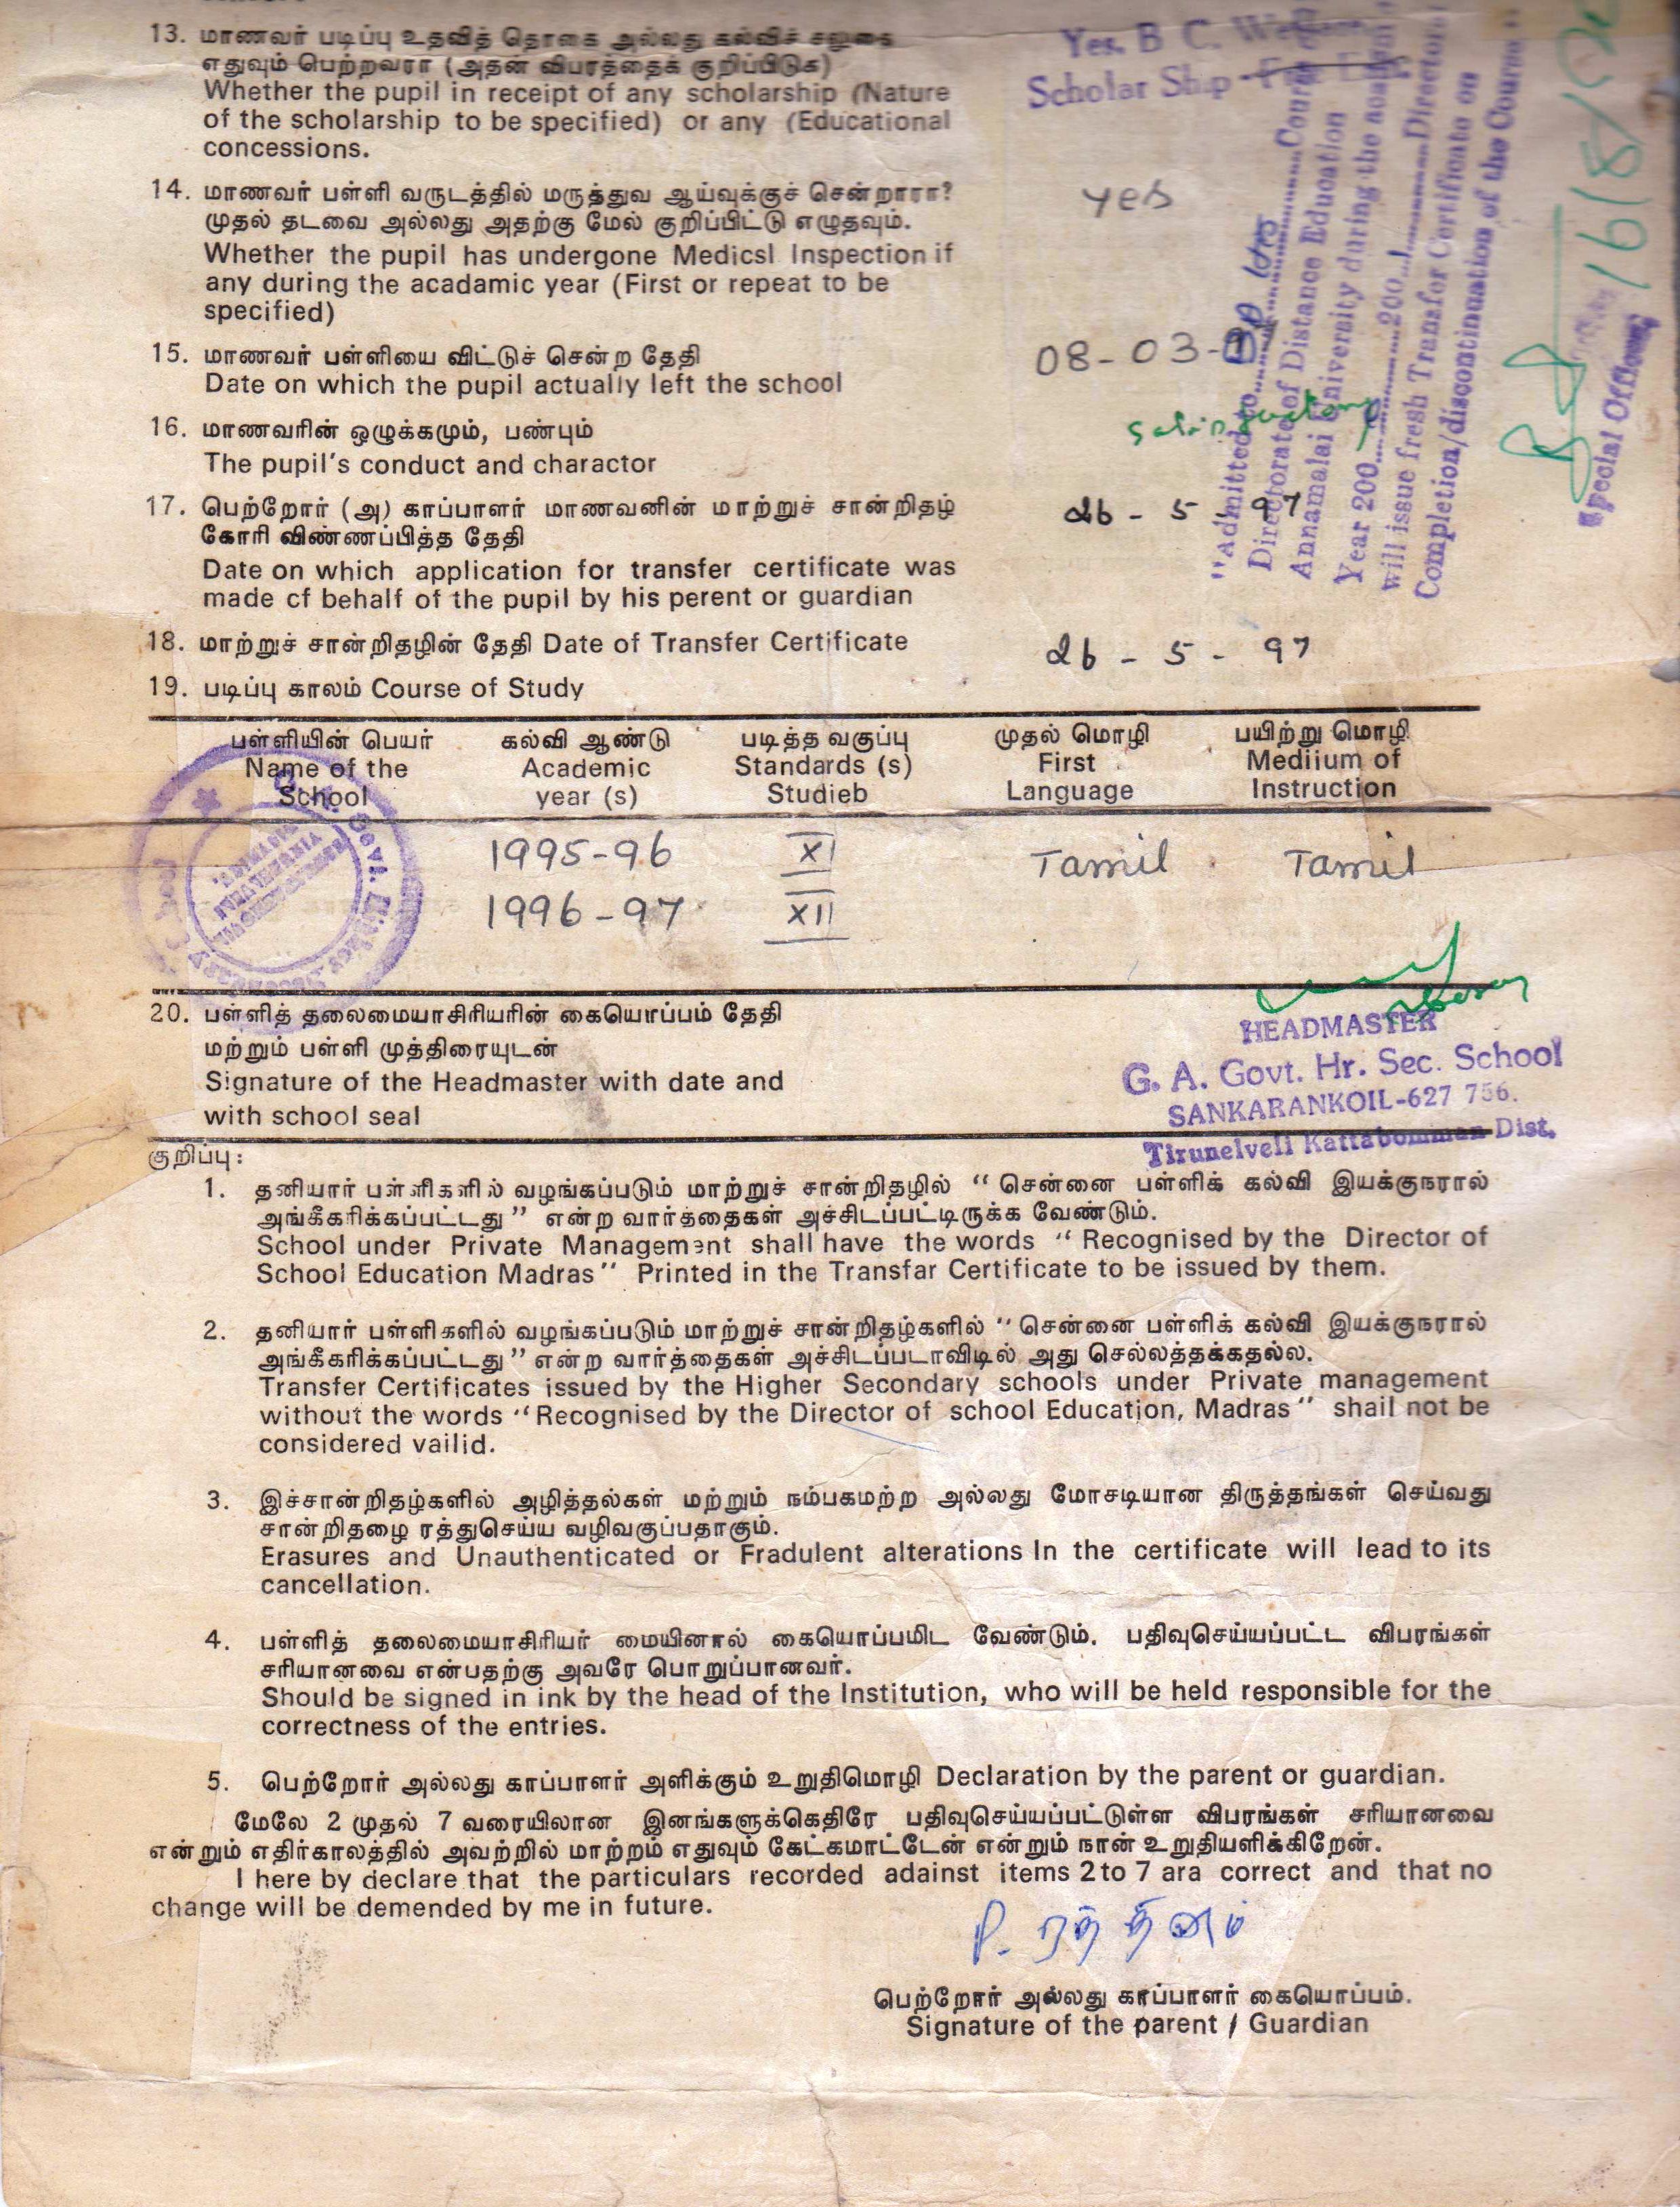 13. மாணவர் படிப்பு உதவித் தொகை அல்லது கல்விச் சலுகை
எதுவும் பெற்றவரா (அதன் விபரத்தைக் குறிப்பிடுக)
Whether the pupil in receipt of any scholarship (Nature
of the scholarship to be specified) or any (Educational
concessions.
Yes. B C.
Scholar Ship
14. மாணவர் பள்ளி வருடத்தில் மருத்துவ ஆய்வுக்குச் சென்றாரா?
முதல் தடவை அல்லது அதற்கு மேல் குறிப்பிட்டு எழுதவும்.
Whether the pupil has undergone Medicsl Inspection if
any during the acadamic year (First or repeat to be
specified)
yes
15. மாணவர் பள்ளியை விட்டுச் சென்ற தேதி
Date on which the pupil actually left the school
08-03-
16. மாணவரின் ஒழுக்கமும், பண்பும்
The pupil's conduct and charactor
17. பெற்றோர் (அ) காப்பாளர் மாணவனின் மாற்றுச் சான்றிதழ்
கோரி விண்ணப்பித்த தேதி
Date on which application for transfer certificate was
made cf behalf of the pupil by his perent or guardian
26 - 5 - 97
18. மாற்றுச் சான்றிதழின் தேதி Date of Transfer Certificate
26 - 5 - 97
19. படிப்பு காலம் Course of Study
"Admitted to.......... Course
Directorate of Distance Education
Annamalai University during the
Year 200..........200..1..........Director
will issue fresh Transfer Certificate on
Completion/discontinuation of the Course"
Special Officer
16/8/02
பள்ளியின் பெயர் கல்வி ஆண்டு படித்த வகுப்பு முதல் மொழி பயிற்று மொழி
Name of the Academic Standards (s) First Mediium of
School year (s) Studieb Language Instruction
1995-96 XI Tamil Tamil
1996-97 XII
20. பள்ளித் தலைமையாசிரியரின் கையொப்பம் தேதி
மற்றும் பள்ளி முத்திரையுடன்
Signature of the Headmaster with date and
with school seal
HEADMASTER
G. A. Govt. Hr. Sec. School
SANKARANKOIL-627 756.
Tirunelveli Kattabomman Dist.
குறிப்பு:
1. தனியார் பள்ளிகளில் வழங்கப்படும் மாற்றுச் சான்றிதழில் " சென்னை பள்ளிக் கல்வி இயக்குநரால்
அங்கீகரிக்கப்பட்டது" என்ற வார்த்தைகள் அச்சிடப்பட்டிருக்க வேண்டும்.
School under Private Management shall have the words " Recognised by the Director of
School Education Madras" Printed in the Transfar Certificate to be issued by them.
2. தனியார் பள்ளிகளில் வழங்கப்படும் மாற்றுச் சான்றிதழ்களில் " சென்னை பள்ளிக் கல்வி இயக்குநரால்
அங்கீகரிக்கப்பட்டது" என்ற வார்த்தைகள் அச்சிடப்படாவிடில் அது செல்லத்தக்கதல்ல.
Transfer Certificates issued by the Higher Secondary schools under Private management
without the words "Recognised by the Director of school Education, Madras" shail not be
considered vailid.
3. இச்சான்றிதழ்களில் அழித்தல்கள் மற்றும் நம்பகமற்ற அல்லது மோசடியான திருத்தங்கள் செய்வது
சான்றிதழை ரத்துசெய்ய வழிவகுப்பதாகும்.
Erasures and Unauthenticated or Fradulent alterations In the certificate will lead to its
cancellation.
4. பள்ளித் தலைமையாசிரியர் மையினால் கையொப்பமிட வேண்டும். பதிவுசெய்யப்பட்ட விபரங்கள்
சரியானவை என்பதற்கு அவரே பொறுப்பானவர்.
Should be signed in ink by the head of the Institution, who will be held responsible for the
correctness of the entries.
5. பெற்றோர் அல்லது காப்பாளர் அளிக்கும் உறுதிமொழி Declaration by the parent or guardian.
மேலே 2 முதல் 7 வரையிலான இனங்களுக்கெதிரே பதிவுசெய்யப்பட்டுள்ள விபரங்கள் சரியானவை
என்றும் எதிர்காலத்தில் அவற்றில் மாற்றம் எதுவும் கேட்கமாட்டேன் என்றும் நான் உறுதியளிக்கிறேன்.
I here by declare that the particulars recorded adainst items 2 to 7 ara correct and that no
change will be demended by me in future.
P. ரத்தினம்
பெற்றோர் அல்லது காப்பாளர் கையொப்பம்.
Signature of the parent / Guardian